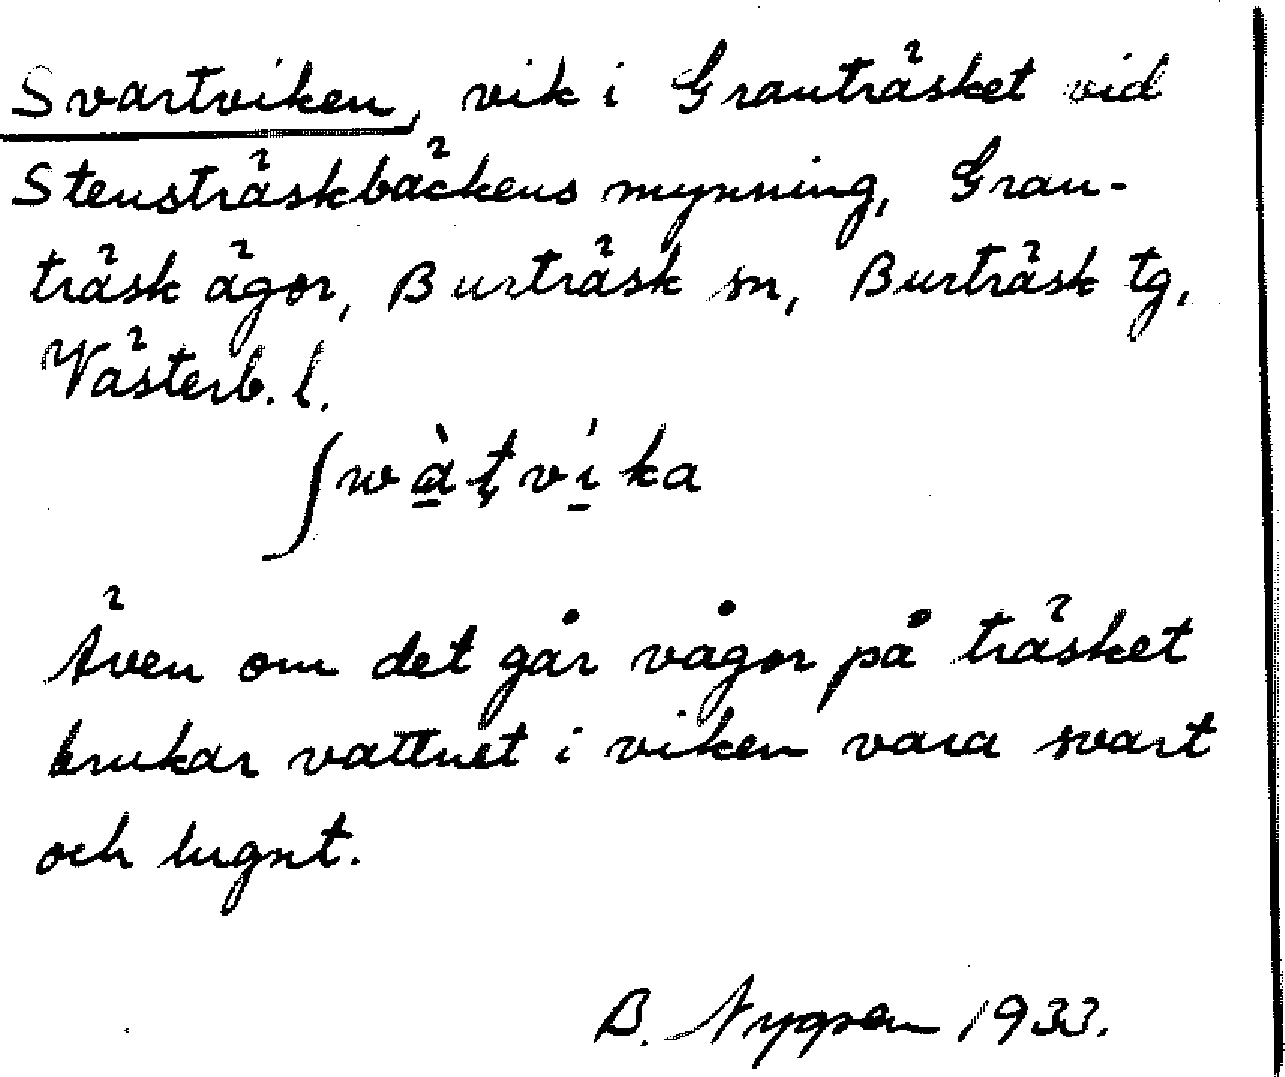 Svartviken, vik i Granträsket vid
Stensträskbäckens mynning, Gran-
träsk ägor, Burträsk sn, Burträsk tg,
Västerb. l.
ʃwàṭvíka
Även om det går vågor på träsket
brukar vattnet i viken vara svart
och lugnt.
B. Nygren 1933.